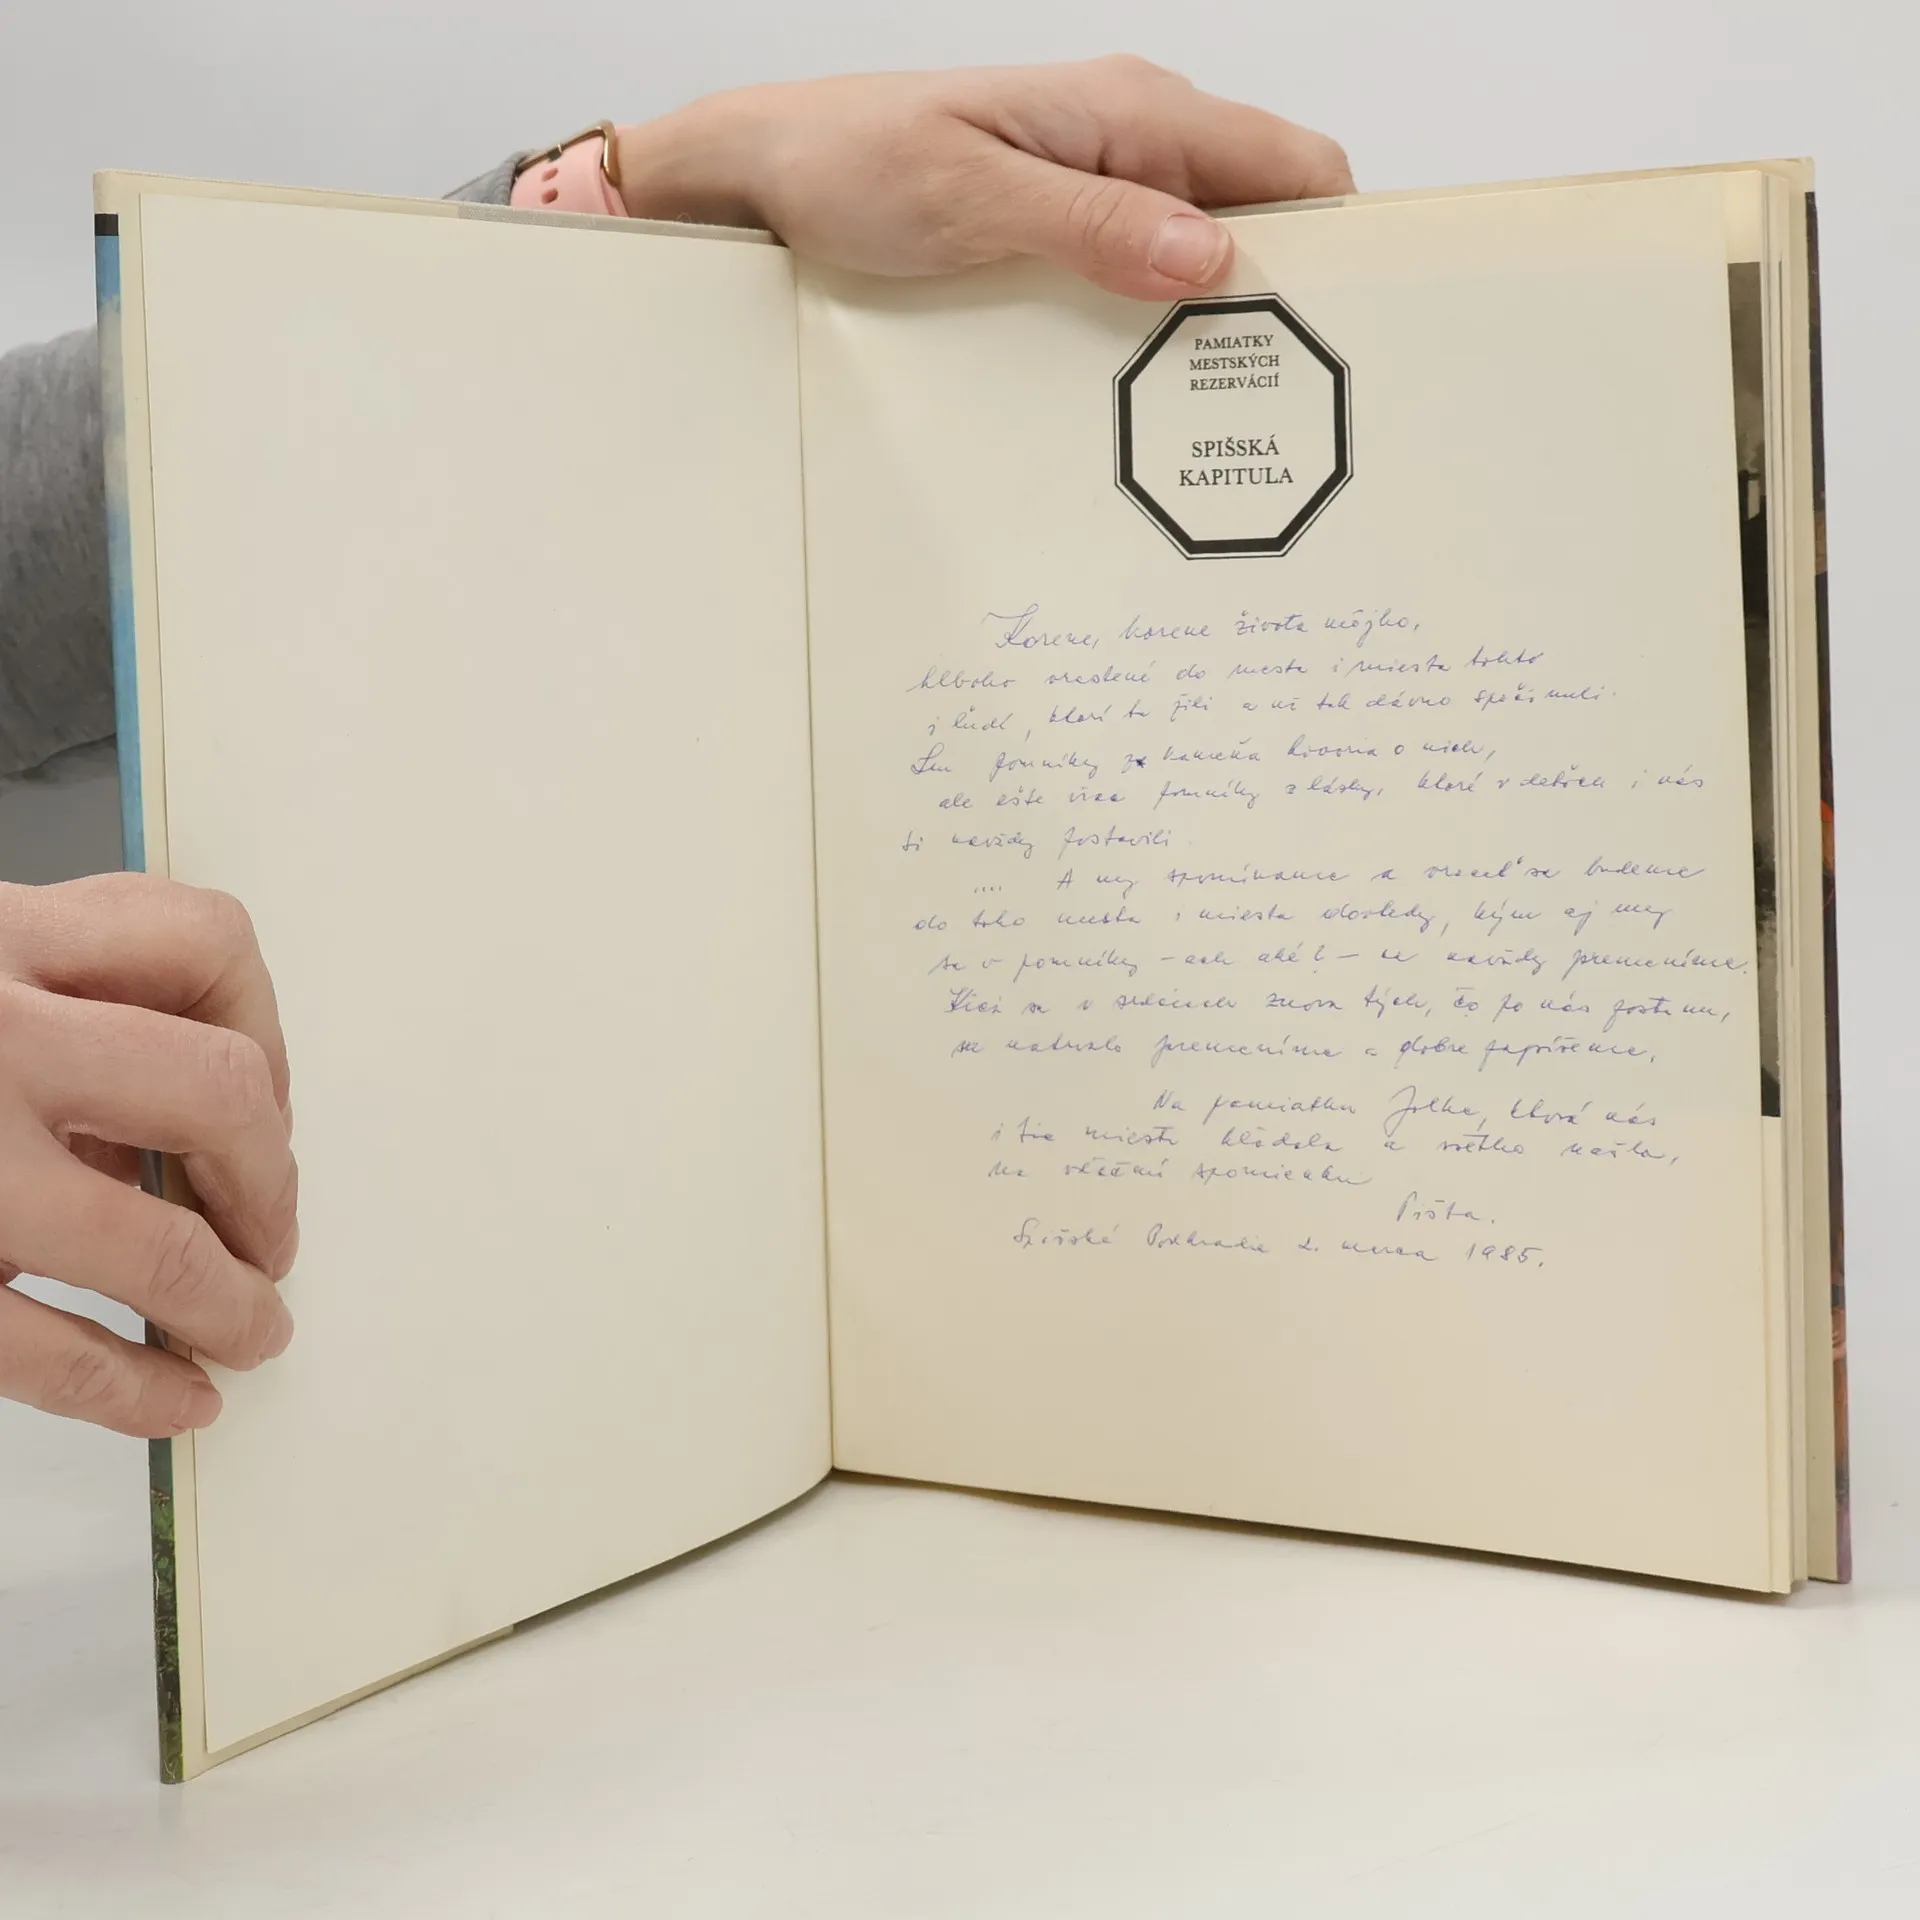 PAMIATKY
MESTSKÝCH
REZERVÁCIÍ
SPIŠSKÁ
KAPITULA
Korene, korene života môjho,
hlboko vrastené do mesta i miesta tohto
i ľudí, ktorí tu žili a už tak dávno spočinuli.
Len pomníky z kameňa hovoria o nich,
ale ešte viac pomníky z lásky, ktoré v deťoch i nás
si navždy postavili.
.... A my spomíname a vracať sa budeme
do toho mesta i miesta dovtedy, kým aj my
sa v pomníky - ach aké? - navždy premeníme.
Kiež sa v srdciach znova tých, čo po nás zostanú,
premeníme a dobre
Na pamiatku Jolke, ktorá nás
i tie miesta hľadala a všetko našla,
na vďačnú spomienku
Pišta.
Spišské Podhradie 2. marca 1985.